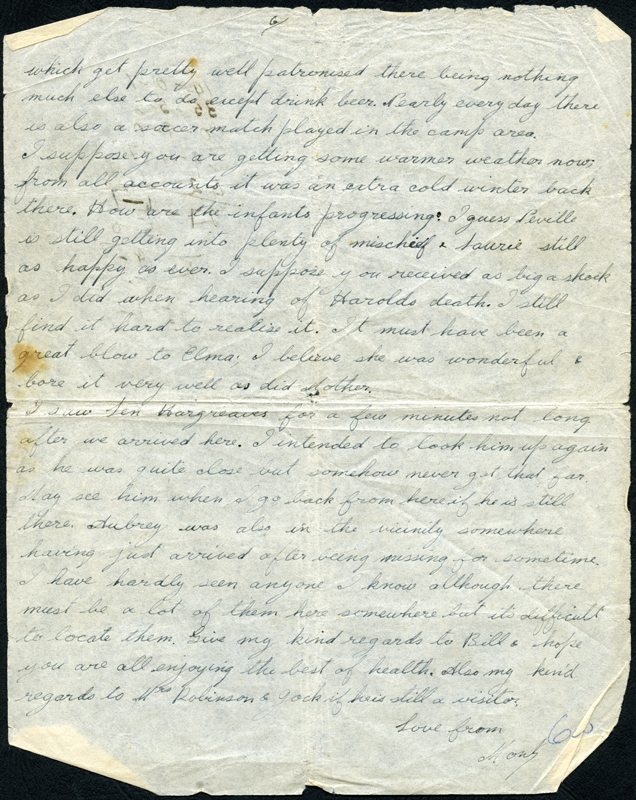 6
which get pretty well patronised there being nothing
much else to do except drink beer. Nearly every day there
is also a soccer match played in the camp area.
I suppose you are getting some warmer weather now;
from all accounts it was an extra cold winter back
there. How are the infants progressing? I guess Neville
is still getting into plenty of mischief & Laurie still
as happy as ever. I suppose you received as big a shock
as I did when hearing of Harolds death. I still
find it hard to realise it. It must have been a
great blow to Elma; I believe she was wonderful &
bore it very well as did Mother.
I saw Len Hargreaves for a few minutes not long
after we arrived here. I intended to look him up again
as he was quite close but somehow never got that far.
May see him when I go back from here if he is still
there. Aubrey was also in the vicinity somewhere
having just arrived after being missing for sometime.
I have hardly seen anyone I know although there
must be a lot of them here somewhere but its difficult
to locate them. Give my kind regards to Bill & hope
you are all enjoying the best of health. Also my kind
regards to Mrs Robinson & Jock if he is still a visitor.
Love from